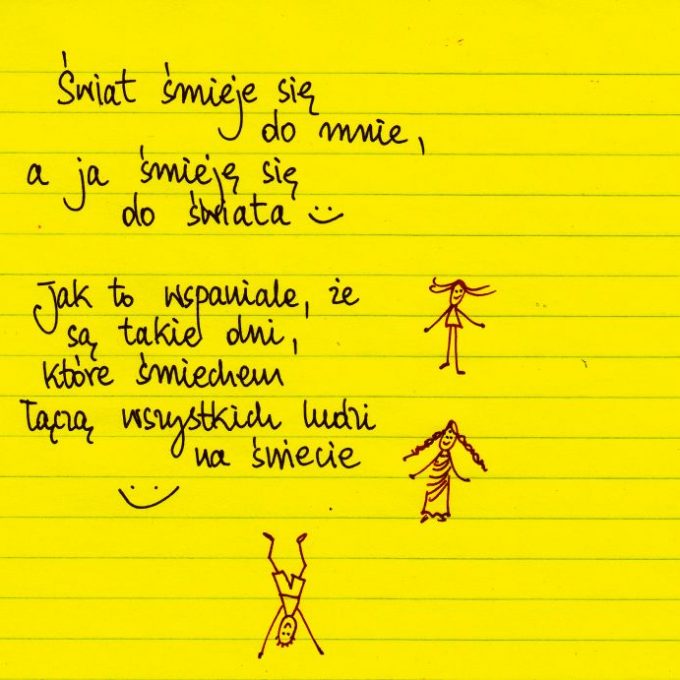 Świat śmieje się
do mnie,
a ja śmieję się
do świata :)
Jak to wspaniale, że
są takie dni,
które śmiechem
łączą wszystkich ludzi
na świecie
:)